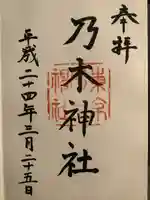 奉拝
乃木神社
平成二十四年三月二十五日